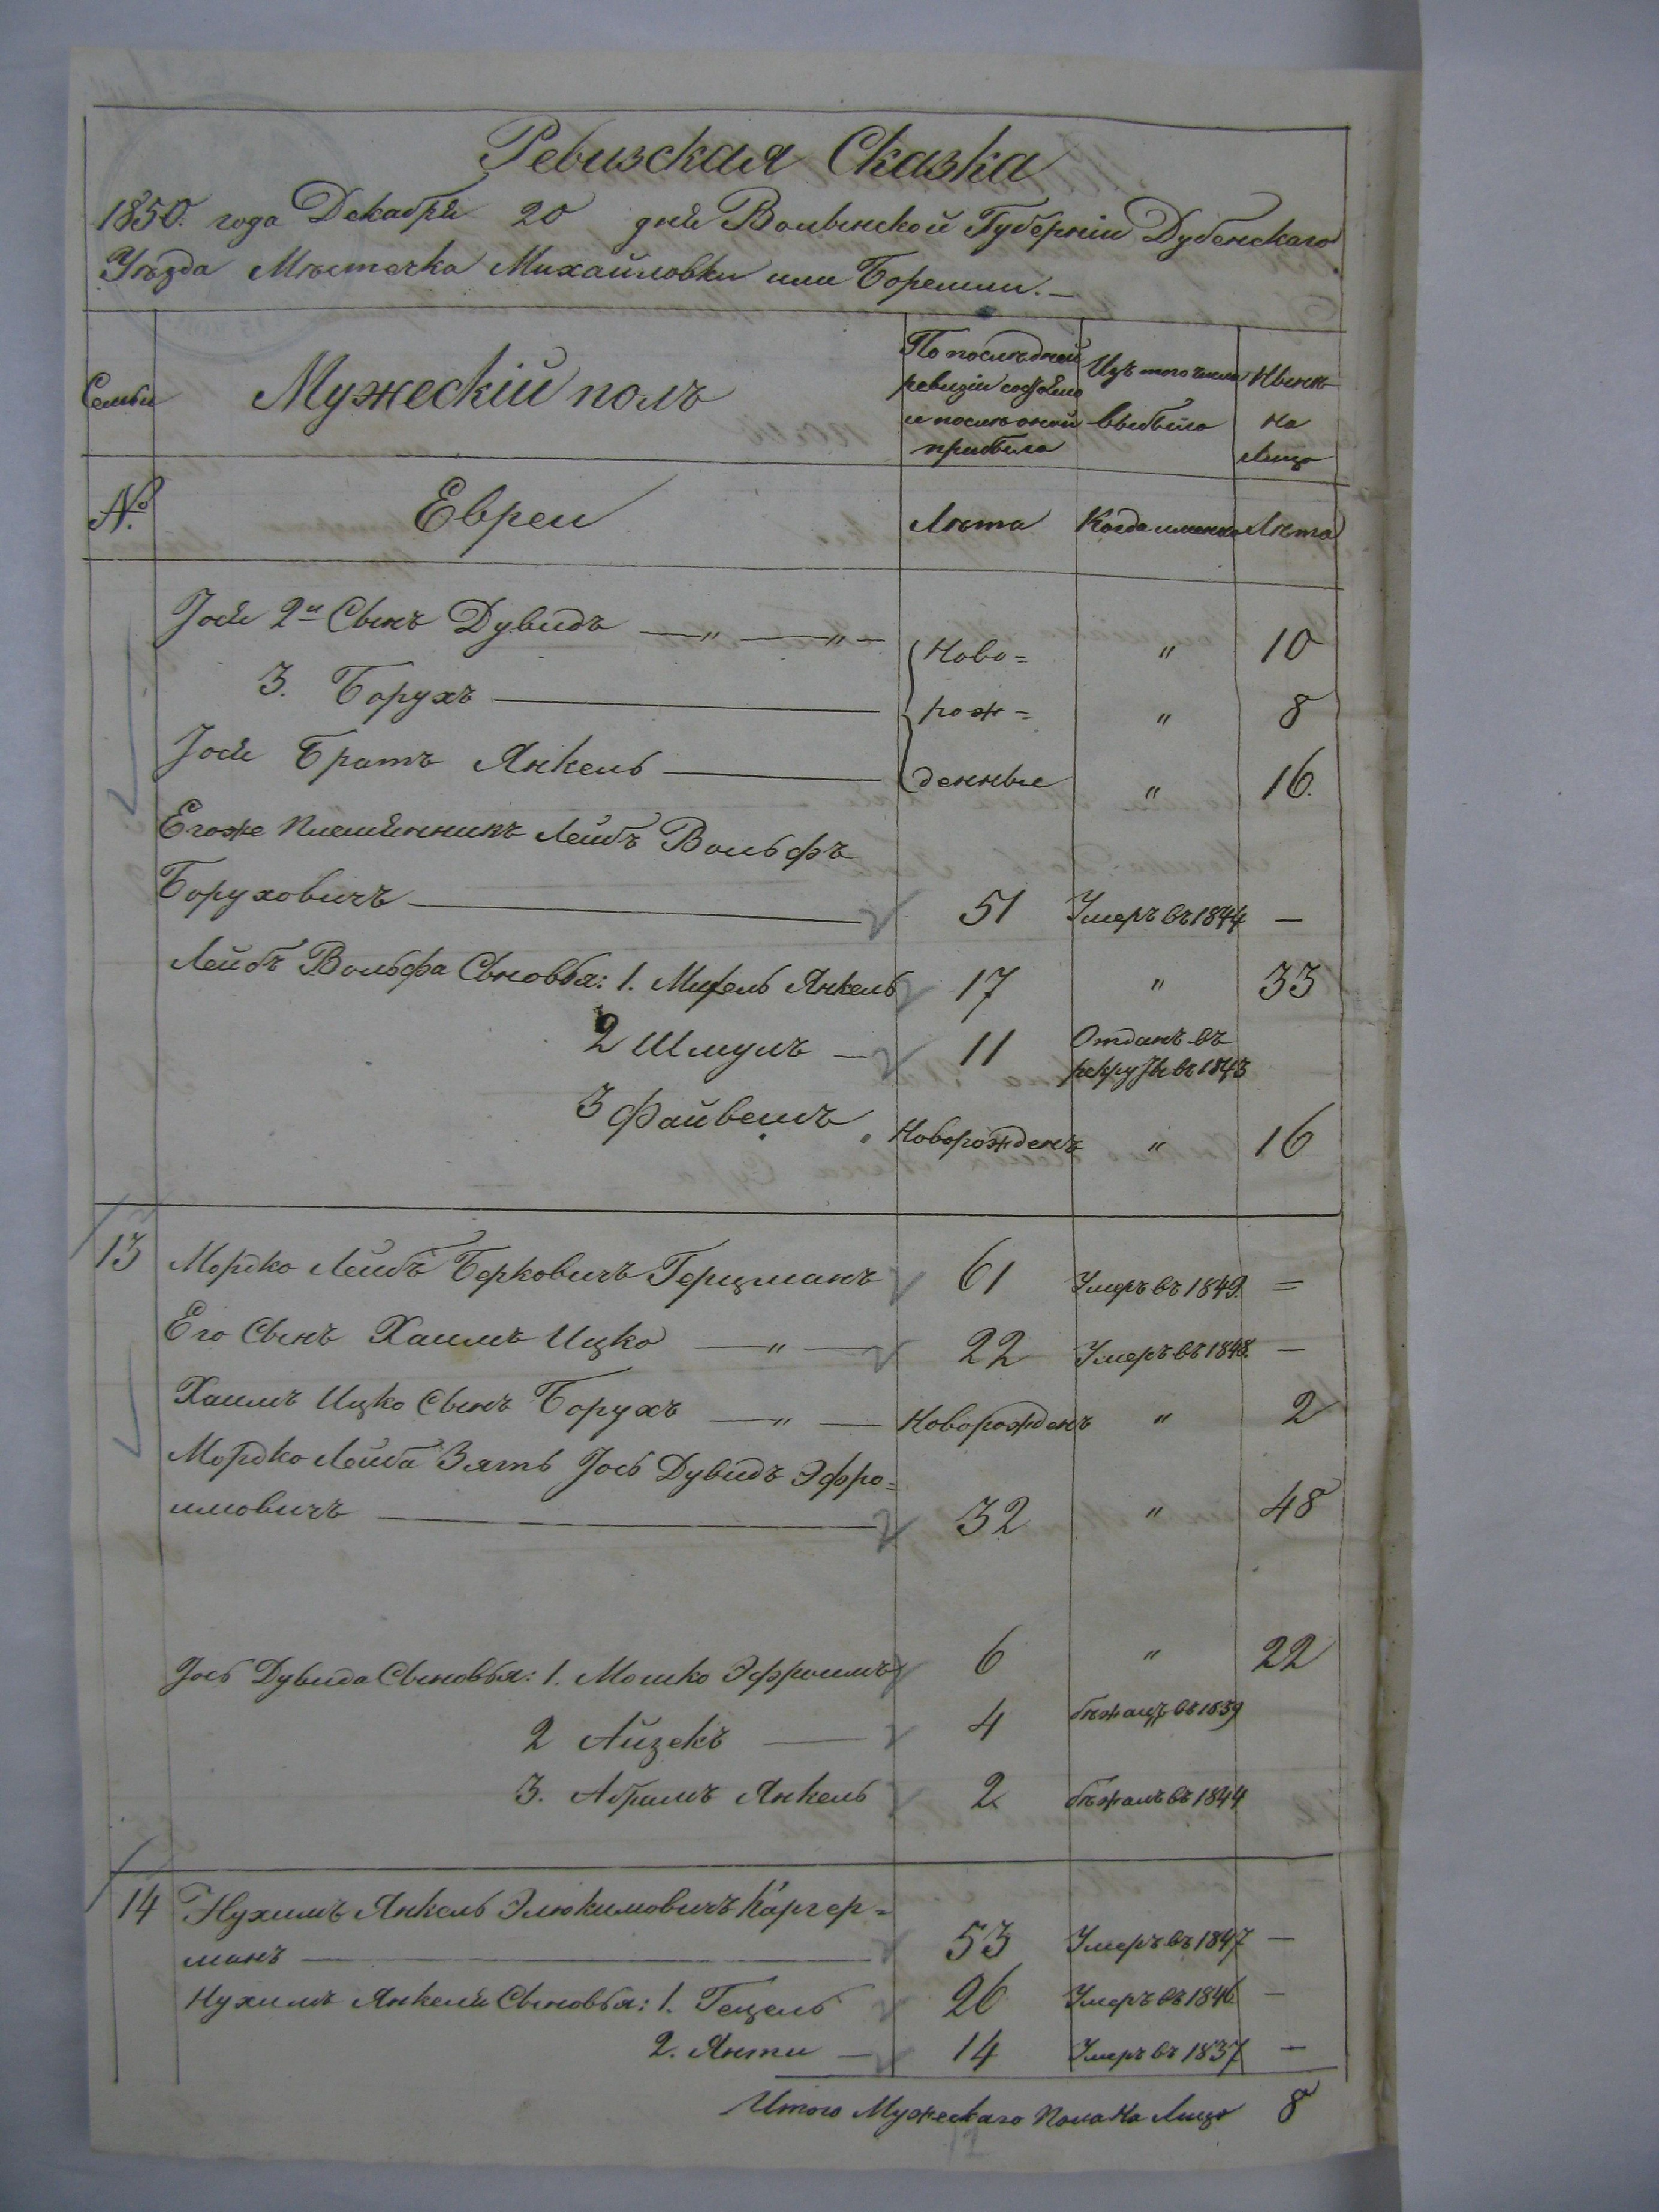 Ревизская Сказка
1850. года Декабря 20 дня Волынской Губерніи Дубенскаго
Уѣзда Мѣстечка Михайловки или Боремли.—
Семьи
Мужескій полъ
По послѣдней ревизіи состояло и послѣ оной прибыло
Изъ того числа выбыло
Нынѣ на Лицо
№.
Евреи
Лѣта Когда именно Лѣта
Іося 2й Сынъ Дувидъ — " — " — Ново= " 10
3. Борухъ — рож= " 8
Іося Братъ Янкель — денные " 16.
Егоже Племянникъ Лейбъ Вольфъ
Боруховичъ — 51 Умеръ въ 1844 —
Лейбъ Вольфа Сыновья: 1. Янкель 17 " 33
2 Шмуль — 11 Отданъ въ
рекруты въ 1843
3 Файвешъ Новорожденъ " 16
13 Мордко Лейбъ Берковичъ Герцманъ 61 Умеръ въ 1849. =
Его Сынъ Хаимъ Ицко — " — 22 Умеръ въ 1848. —
Хаимъ Ицко Сынъ Борухъ — " — Новорожденъ " 2
Мордко Лейба Зять Іось Дувидъ Эфро=
имовичъ — 32 " 48
Іось Дувида Сыновья: 1. Мошко Эфроимъ 6 " 22
2 Айзекъ — 4 бѣжалъ въ 1839
3. Абрамъ Янкель 2 бѣжалъ въ 1844
14 Нухимъ Янкель Элюкимовичъ Каргер=
манъ — 53 Умеръ въ 1847 —
Нухимъ Янкеля Сыновья: 1. Гецель 26 Умеръ въ 1846 —
2. Янти — 14 Умеръ въ 1837 —
Итого Мужескаго Пола На Лицо 8